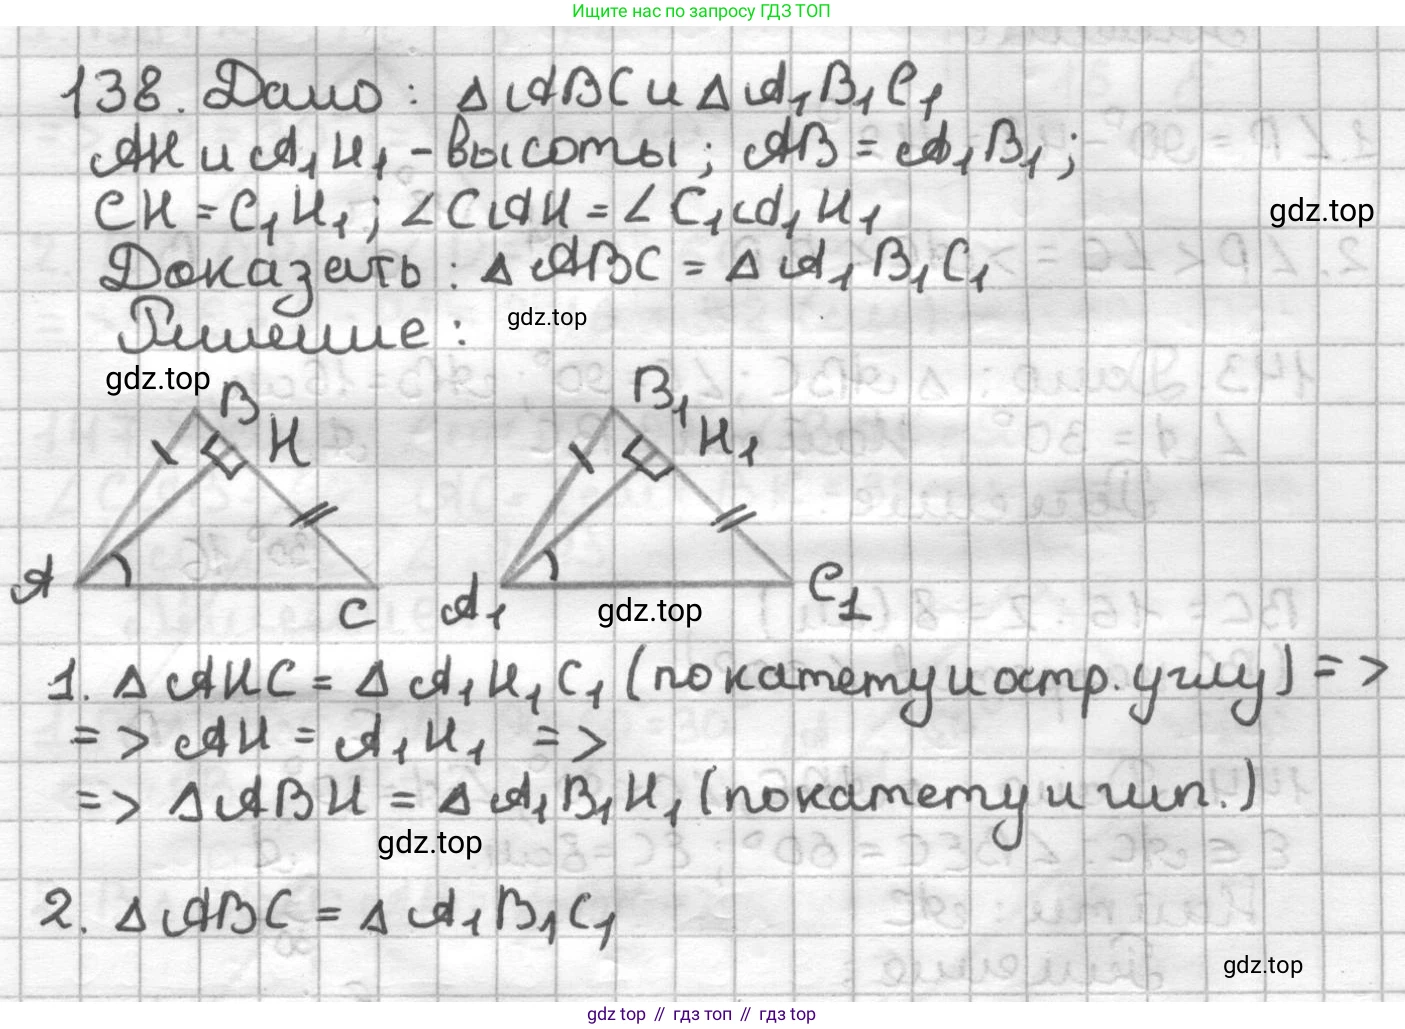 Ищите нас по запросу ГДЗ ТОП
138. Дано: △ABC и △A₁B₁C₁
AH и A₁H₁ - высоты; AB = A₁B₁;
CH = C₁H₁; ∠CAH = ∠C₁A₁H₁
gdz.top
Доказать: △ABC = △A₁B₁C₁
Решение:
gdz.top
gdz.top
B
H
A
C
B₁
H₁
A₁
C₁
gdz.top
1. △AHC = △A₁H₁C₁ (по катету и остр. углу) =>
=> AH = A₁H₁ =>
=> △ABH = △A₁B₁H₁ (по катету и гип.)
gdz.top
2. △ABC = △A₁B₁C₁
gdz.top
gdz top // гдз топ // гдз top